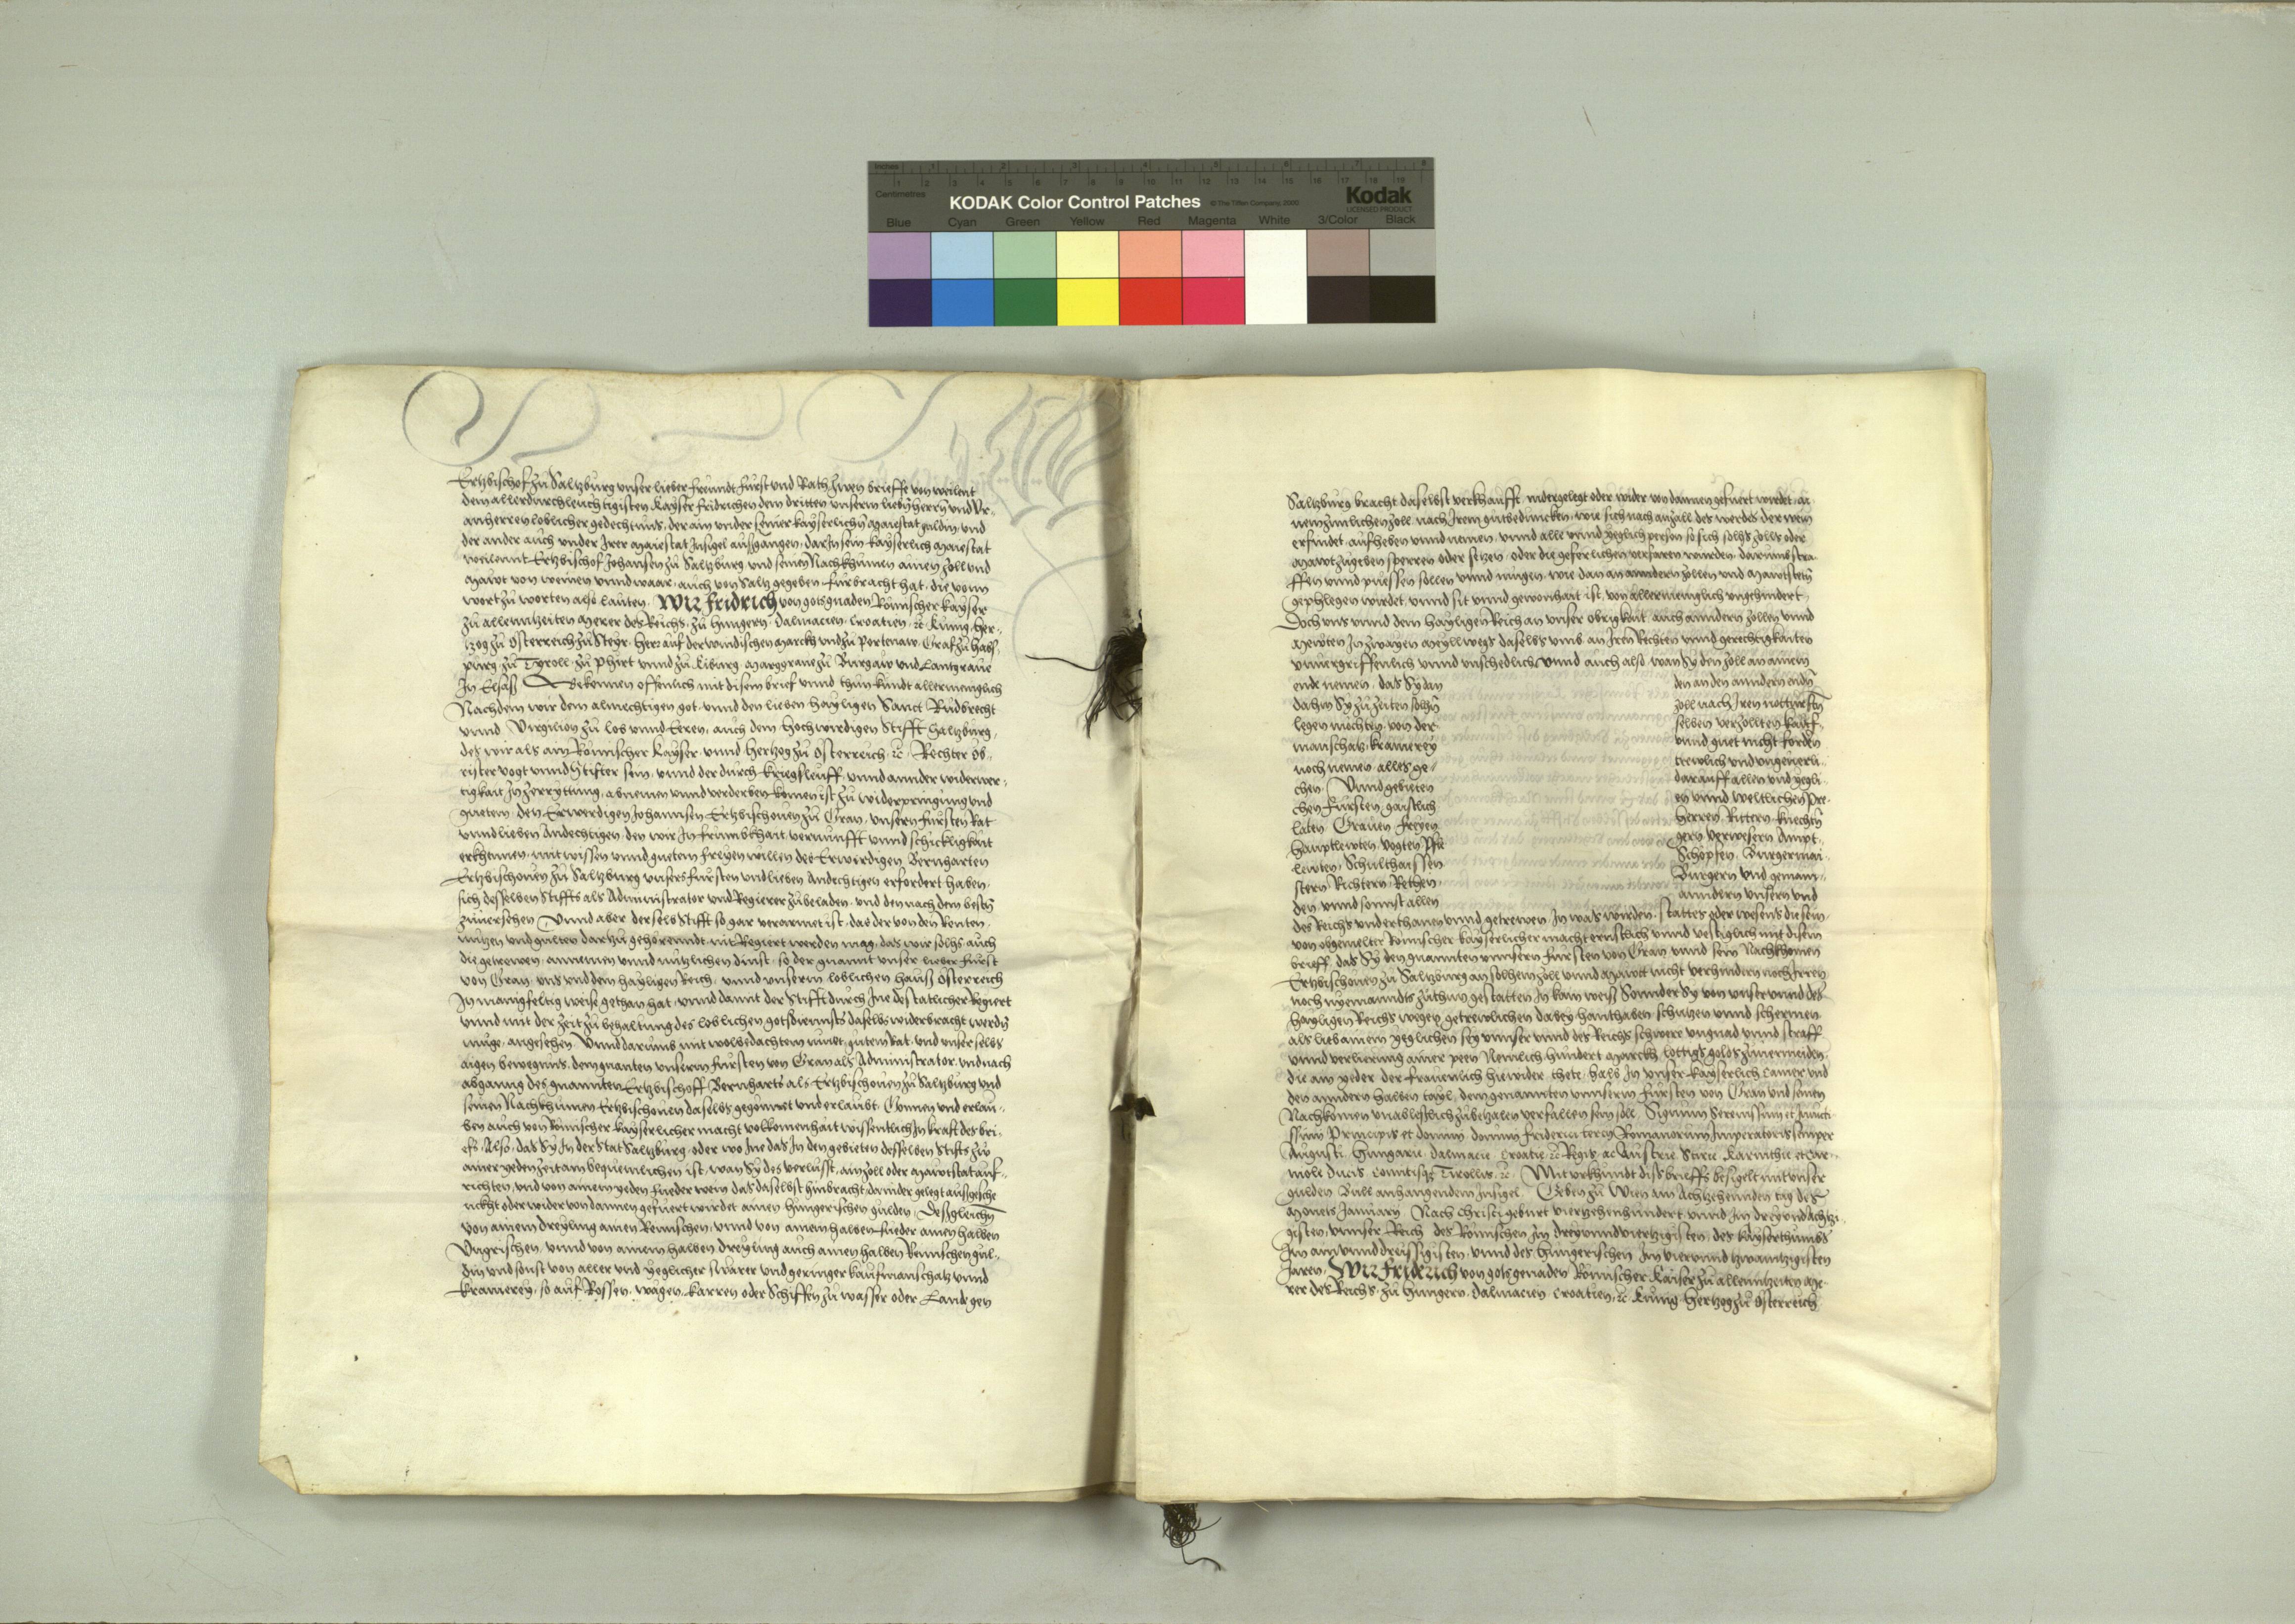 Inches 1 2 3 4 5 6 7 8
Centimetres 1 2 3 4 5 6 7 8 9 10 11 12 13 14 15 16 17 18 19
KODAK Color Control Patches © The Tiffen Company, 2000 Kodak
LICENSED PRODUCT
Blue Cyan Green Yellow Red Magenta White 3/Color Black
Ertzbischof zu Saltzburg unser lieber freundt fürst und Rath zwen brieffe von weilent
dem allerdurchleuchtigisten Kayser fridrichen dem dritten unserm liebn herrn und Ur-
anherren loblicher gedechtnus, der ain under seiner kayserlichn Maiestat guldin, und
der ander auch under Irer Maiestat Insigel außgangen, darIn sein kayserlich Maiestat
weilennt Ertzbischof Johansen zu Saltzburg und seinen Nachkhumen ainen zoll und
Mawt von weinen unnd waar, auch von Saltz gegeben fürbracht hat, die vonn
wort zu worten also lauten. Wir Fridrich von gots gnaden Römischer kayser
zu allenntzeiten Merer des Reichs, zu Hungern, Dalmacien, Croatien, etc. Kunig, Her-
tzog zu Österreich zu Steyr, Herr auf der windischen March und zu Portenaw, Graf zu Habs-
purg, zu Tyroll, zu Phirt unnd zu Kiburg, Marggrave zu Burgaw und Lantgrave
In Elsaß Bekennen offenlich mit disem brief unnd thun kundt allermeniglich
Nachdem wir dem almechtigen got, unnd den lieben hayligen Sanct Rudbrecht
unnd Virgilion zu lob unnd Eeren, auch dem hochwirdigen Stifft Saltzburg,
des wir als ain Römischer Kayser, unnd Hertzog zu Österreich, etc. Rechter Ob-
rister vogt unnd Stifter sein, unnd der durch kriegsleuff, unnd annder widerwer-
tigkait In zerryttung, abnemen unnd verderben komen ist, zu widerpringung und
guetem, den Erwerdigen Johannsen Ertzbischoven zu Gran, unsern fürsten Rat
unnd lieben Andechtigen, den wir In frumbkhait, vernunfft unnd schickligkait
erkhennen, mit wissen unnd guetem freyen willen des Erwirdigen Bernharten
Ertzbischoven zu Saltzburg unsers fursten und lieben Andechtigen erfordert haben,
sich desselben Stiffts als Administrator und Regierer zubeladen, und den nach dem bestn
zuversehen Unnd aber derselb Stifft so gar verarmet ist, das der von den Renten,
nutzen und gülten dartzu gehörenndt, nit Regiert werden mag, das wir solhs, auch
die getrewen, annemen unnd nutzlichen dinst, so der gnannt unser lieber fürst
von Gran, uns und dem hayligen Reich, unnd unserm loblichen Hauß Österreich
In manigfeltig weise gethan hat, unnd damit der Stifft durch Ine dest statlicher Regiert
unnd mit der zeit zu behaltung des loblichen gotsdiennsts daselbs widerbracht werdn
muge, angesehen, Unnd darumb mit wolbedachtem muet, gutem Rat, und unser selbs
aigen bewegnus, dem gnanten unserm fürsten von Gran als Administrator, und nach
abganng des gnannten Ertzbischoff Bernharts als Ertzbischoven zu Saltzburg und
seinen Nachkhumen Ertzbischoven daselbs gegönnet und erlaubt, Gönnen und erlau-
ben auch von Römischer kayserlicher macht volkomenhait wissentlich In kraft des bri-
efs, Also, das Sy In der Stat Saltzburg, oder wo Ine das In den gebieten desselben Stifts zu
ainer yeden zeit am bequemlichen ist, wan Sy des verlusst, ain zoll oder Mawtstat auf-
richten, und von ainem yeden fueder wein das daselbst hinbracht, da nider gelegt außgesche-
nckht oder wider von dannen gefuert wirdet ainen Hungerischen gulden, Deßgleichn
von ainem dreyling ainen Reinischen, unnd von ainem halben fueder ainen halben
Ungrischen, unnd von ainem halben dreyling auch ainen halben Reinischen gul-
din und sonst von aller und yeglicher swärer und geringer kaufmanschatz unnd
kramerey, so auf Rossen, wagen, karren oder Schiffen zu wasser oder Lande gen
Saltzburg bracht daselbst verkhaufft, nidergelegt oder wider von dannen gefuert wirdet, ai-
nen zimlichen zoll nach Irem gutbedüncken, wie sich nach anzall des werdes der wein
erfindet, aufheben unnd nemen, unnd alle unnd yeglich person so sich solhs zolls oder
Mawt zugeben sperren oder setzen, oder die geferlichen verfaren wurden, darumb stra-
ffen unnd puessen sollen unnd mugen, wie dan an anndern zöllen und Mawtstetn
gephlegen wirdet, unnd sit unnd gewonhait ist, von allermeniglich ungehindert,
Doch uns unnd dem hayligen Reich an unser obrigkait, auch anndern zöllen unnd
Mewten In zwayen Meyll wegs daselbs umb, an Iren Rechten unnd gerechtigkaiten
unvergriffenlich unnd unschedlich, unnd auch also, wan Sy den zoll an ainem
ende nemen, das Sy dan den an den anndern endn
dahin Sy zu zeiten solhn zoll nach Iren notturftn
legen möchten, von der selben verzollten kauf-
manschatz, kramerey unnd guet nicht fordern
noch nemen, alles ge- trewlich und ungeverli-
chen, Unnd gebieten darauff allen und yegli-
chen Fürsten, gaistlich en unnd weltlichen, Pre-
laten, Graven, freyen herren, Rittern, knechtn
haupltewten, vogten, Pfle gern, verwesern, Ampt-
lewten, Schulthaissen Schöpfen, Burgermai-
stern, Richtern, Rethen, Burgern und gemain-
den unnd sonnst allen anndern unsern und
des Reichs underthanen unnd getrewen, In was wirden, stattes oder wesens die sein
von obgemelter Römischer kayserlicher macht ernstlich unnd vestiglich mit disem
brieff, das Sy den gnannten unnsern fürsten von Gran unnd sein Nachkhomen
Ertzbischoven zu Saltzburg an solhem zoll unnd Mawtt nicht verhindern noch Irren,
noch nyemanndts zuthun gestatten In kain weiß Sonnder Sy von unser unnd des
Hayligen Reichs wegen, getrewlichen dabey hanthaben, schützen unnd schermen,
als lieb ainem yeglichen sey unnser unnd des Reichs schwere ungnad unnd straff
unnd verlierung ainer peen Nemlich hundert Marckh lottigs golds zuvermeiden,
die ain yeder, der frävenlich hiewider thete, halb In unser kayserlich Camer und
den anndern halben tayl, dem genannten unnserm fürsten von Gran und seinen
Nachkomen unableßlich zubetzalen verfallen sein soll. Signum Serenissimi et Invicti-
ssimi Principis et domini, domini Friderici tercij Romanorum Imperatoris semper
Augusti, Hungarie, Dalmacie, Croatie, etc. Regis, ac Austrie, Stirie, Karinthie et Car-
niole Ducis, Comitisque Tirollis, etc. Mit urkhundt diß brieffs besigelt mit unser
gulden Bull anhangendem Insigel. Geben zu Wien am Achtzehennden tag des
Monets January Nach Christi geburt viertzehenhundert unnd Im dreyundachtzi-
gisten, unnser Reich des Römischen Im dreyunndviertzigisten, des kayserthumbs
Im ainunnddreissigisten, unnd des Hungerischen Im vierunndtzwantzigisten
Jaren, Wir Fridrich von gots genaden Römischer Kaiser zu allenntzeiten Me-
rer des Reichs, zu Hungern, Dalmacien, Croatien, etc. Kunig, Hertzog zu Österreich